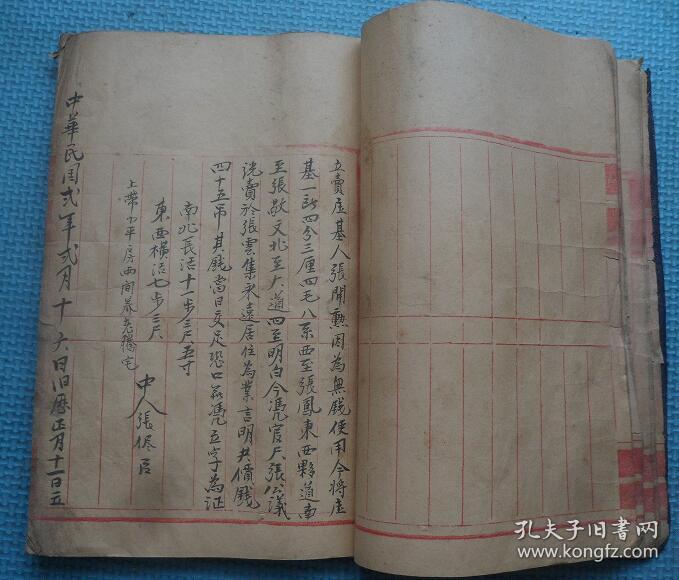 立賣庄基人張開勲因為無钱使用今將庄
基一所四分三厘四毛八糸西至張鳳東西夥道南
至張敬文北至大道四至明白今凭官尺張公議
說賣於張雲集永遠居住為業言明共價錢
四十五吊其錢當日交足恐口無凭立字為证
南北長活十一步三尺五寸
東西橫活七步三尺
上帶小平房両間
中人張
中華民国弍年弍月十六日旧歷正月十一日立
孔夫子旧书网
www.kongfz.com